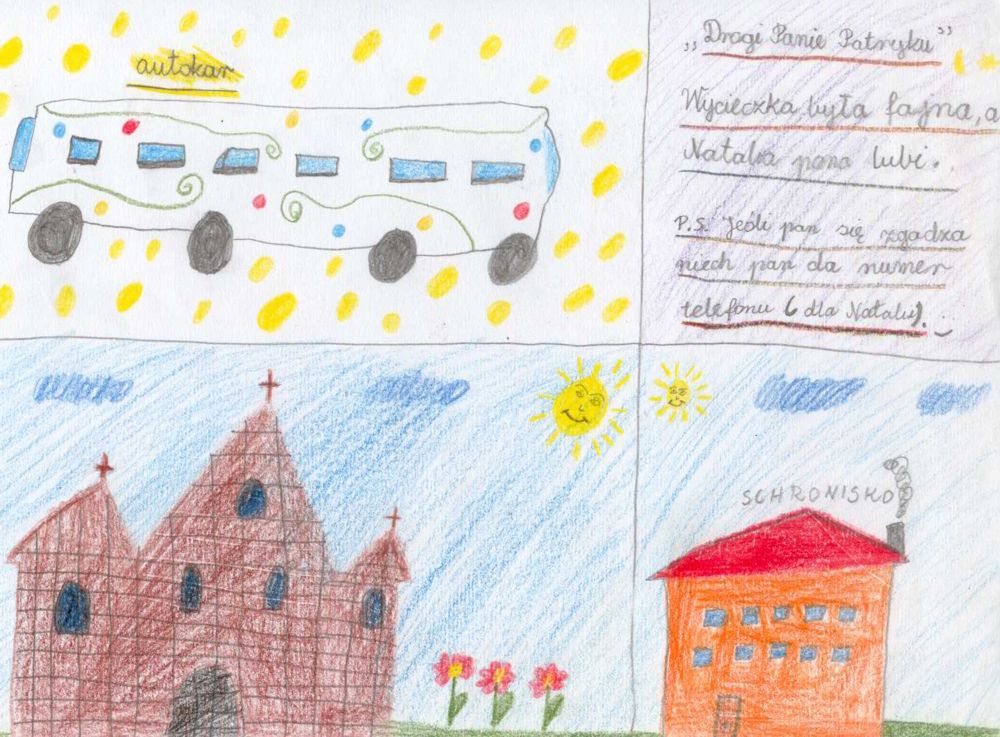 autokar
„Drogi Panie Patryku”
Wycieczka była fajna, a
Natalia pana lubi.
P.S. Jeśli pan się zgadza
niech pan da numer
telefonu (dla Natalii).
SCHRONISKO